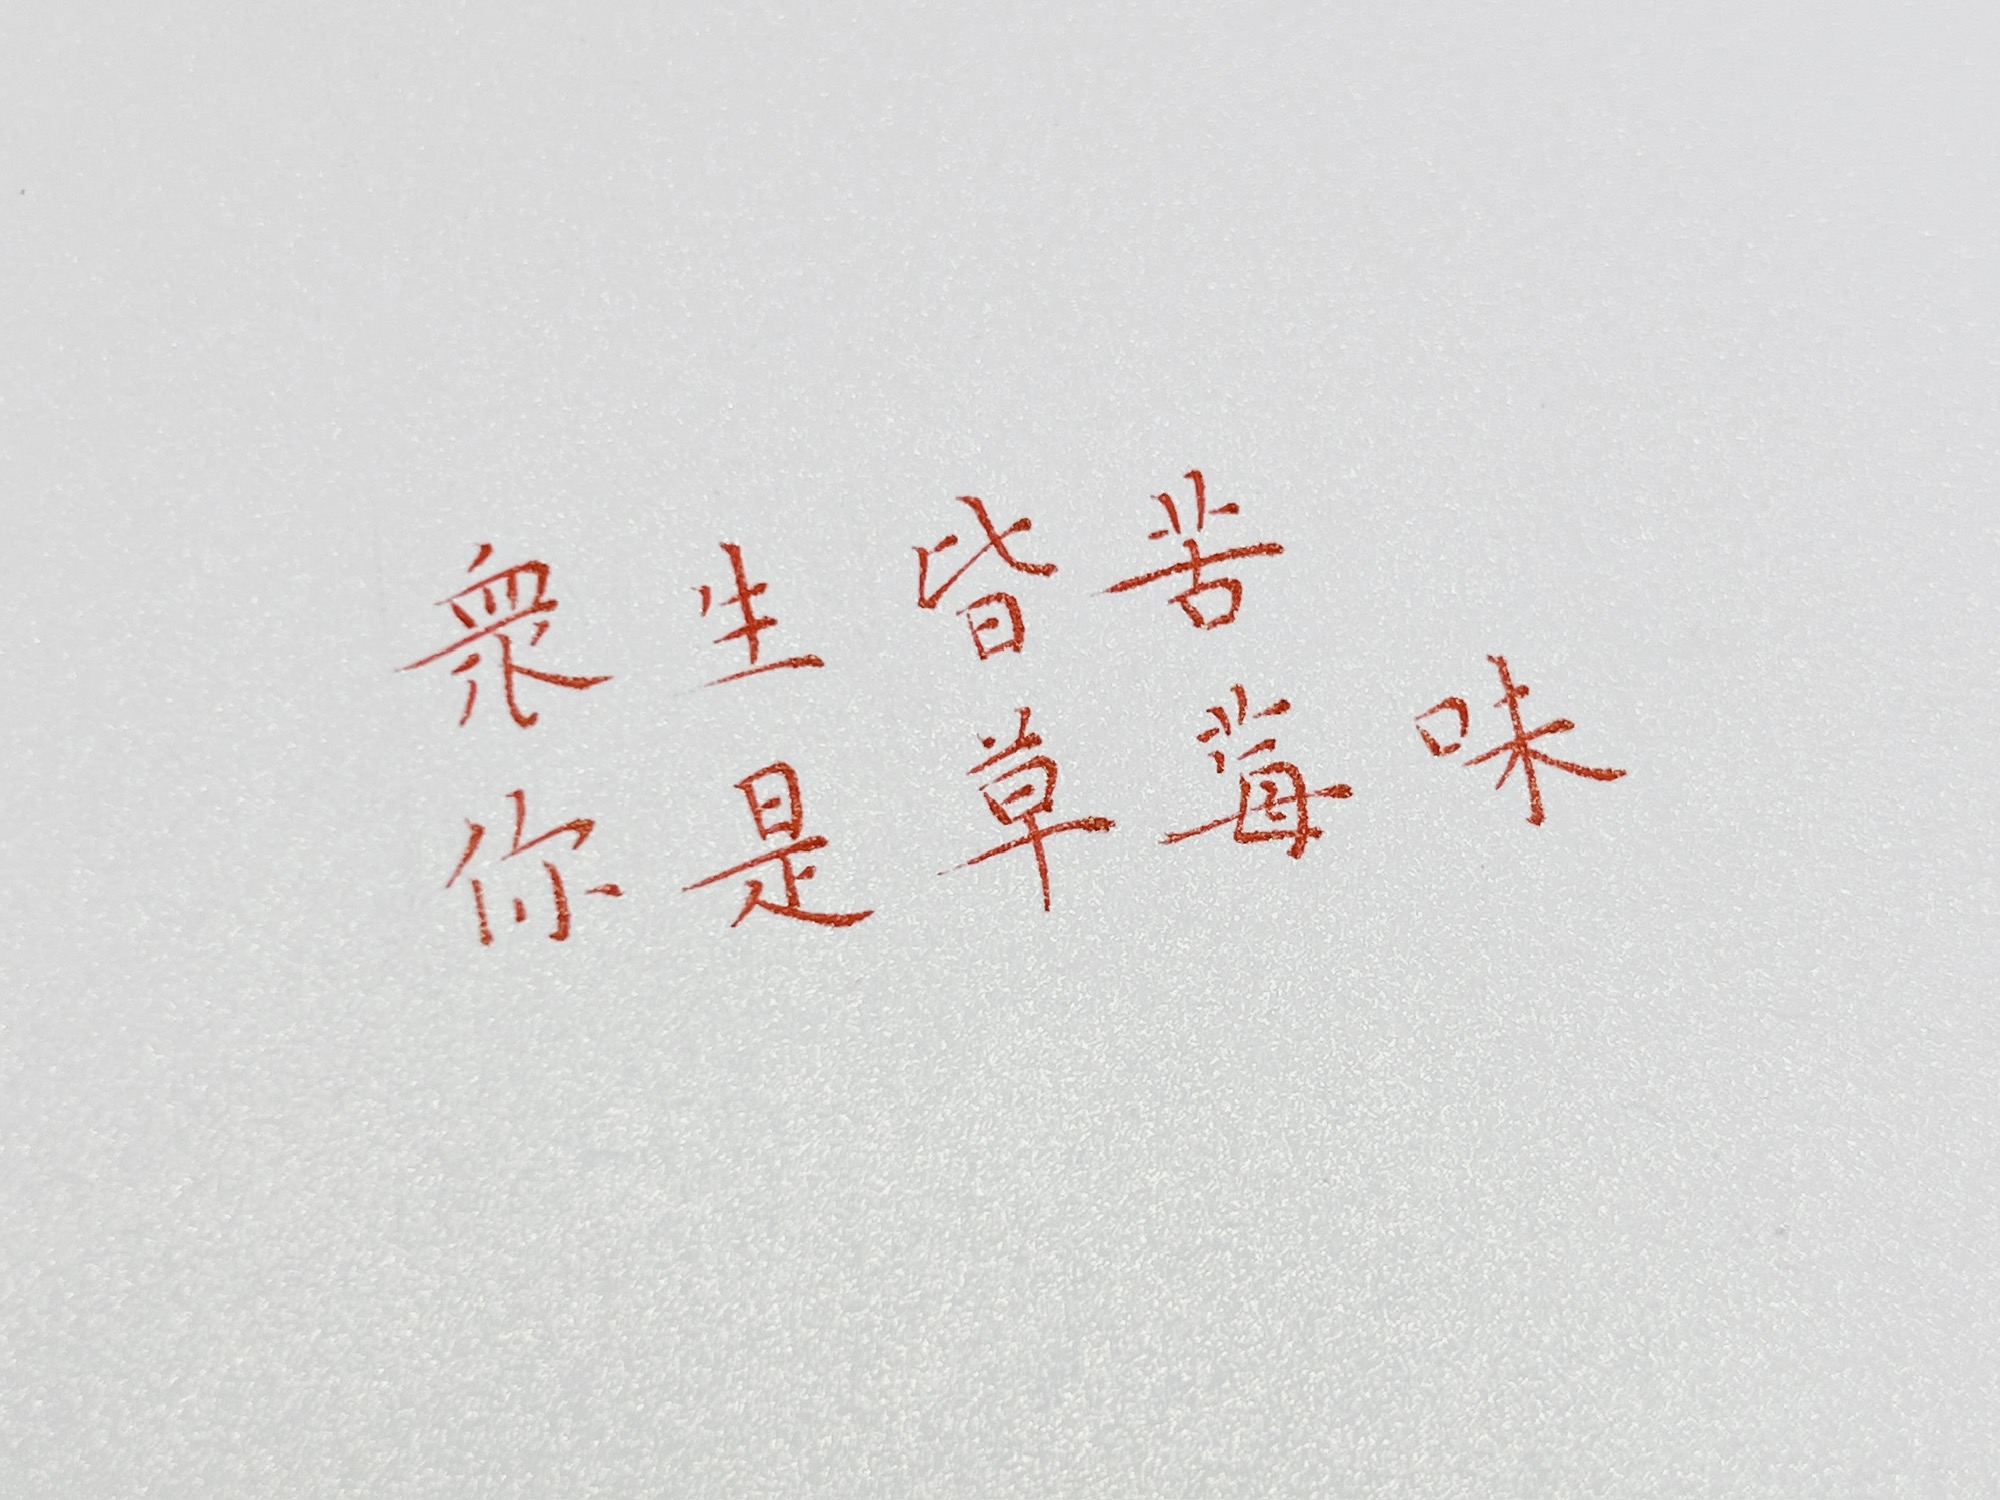 眾生皆苦
你是草莓味